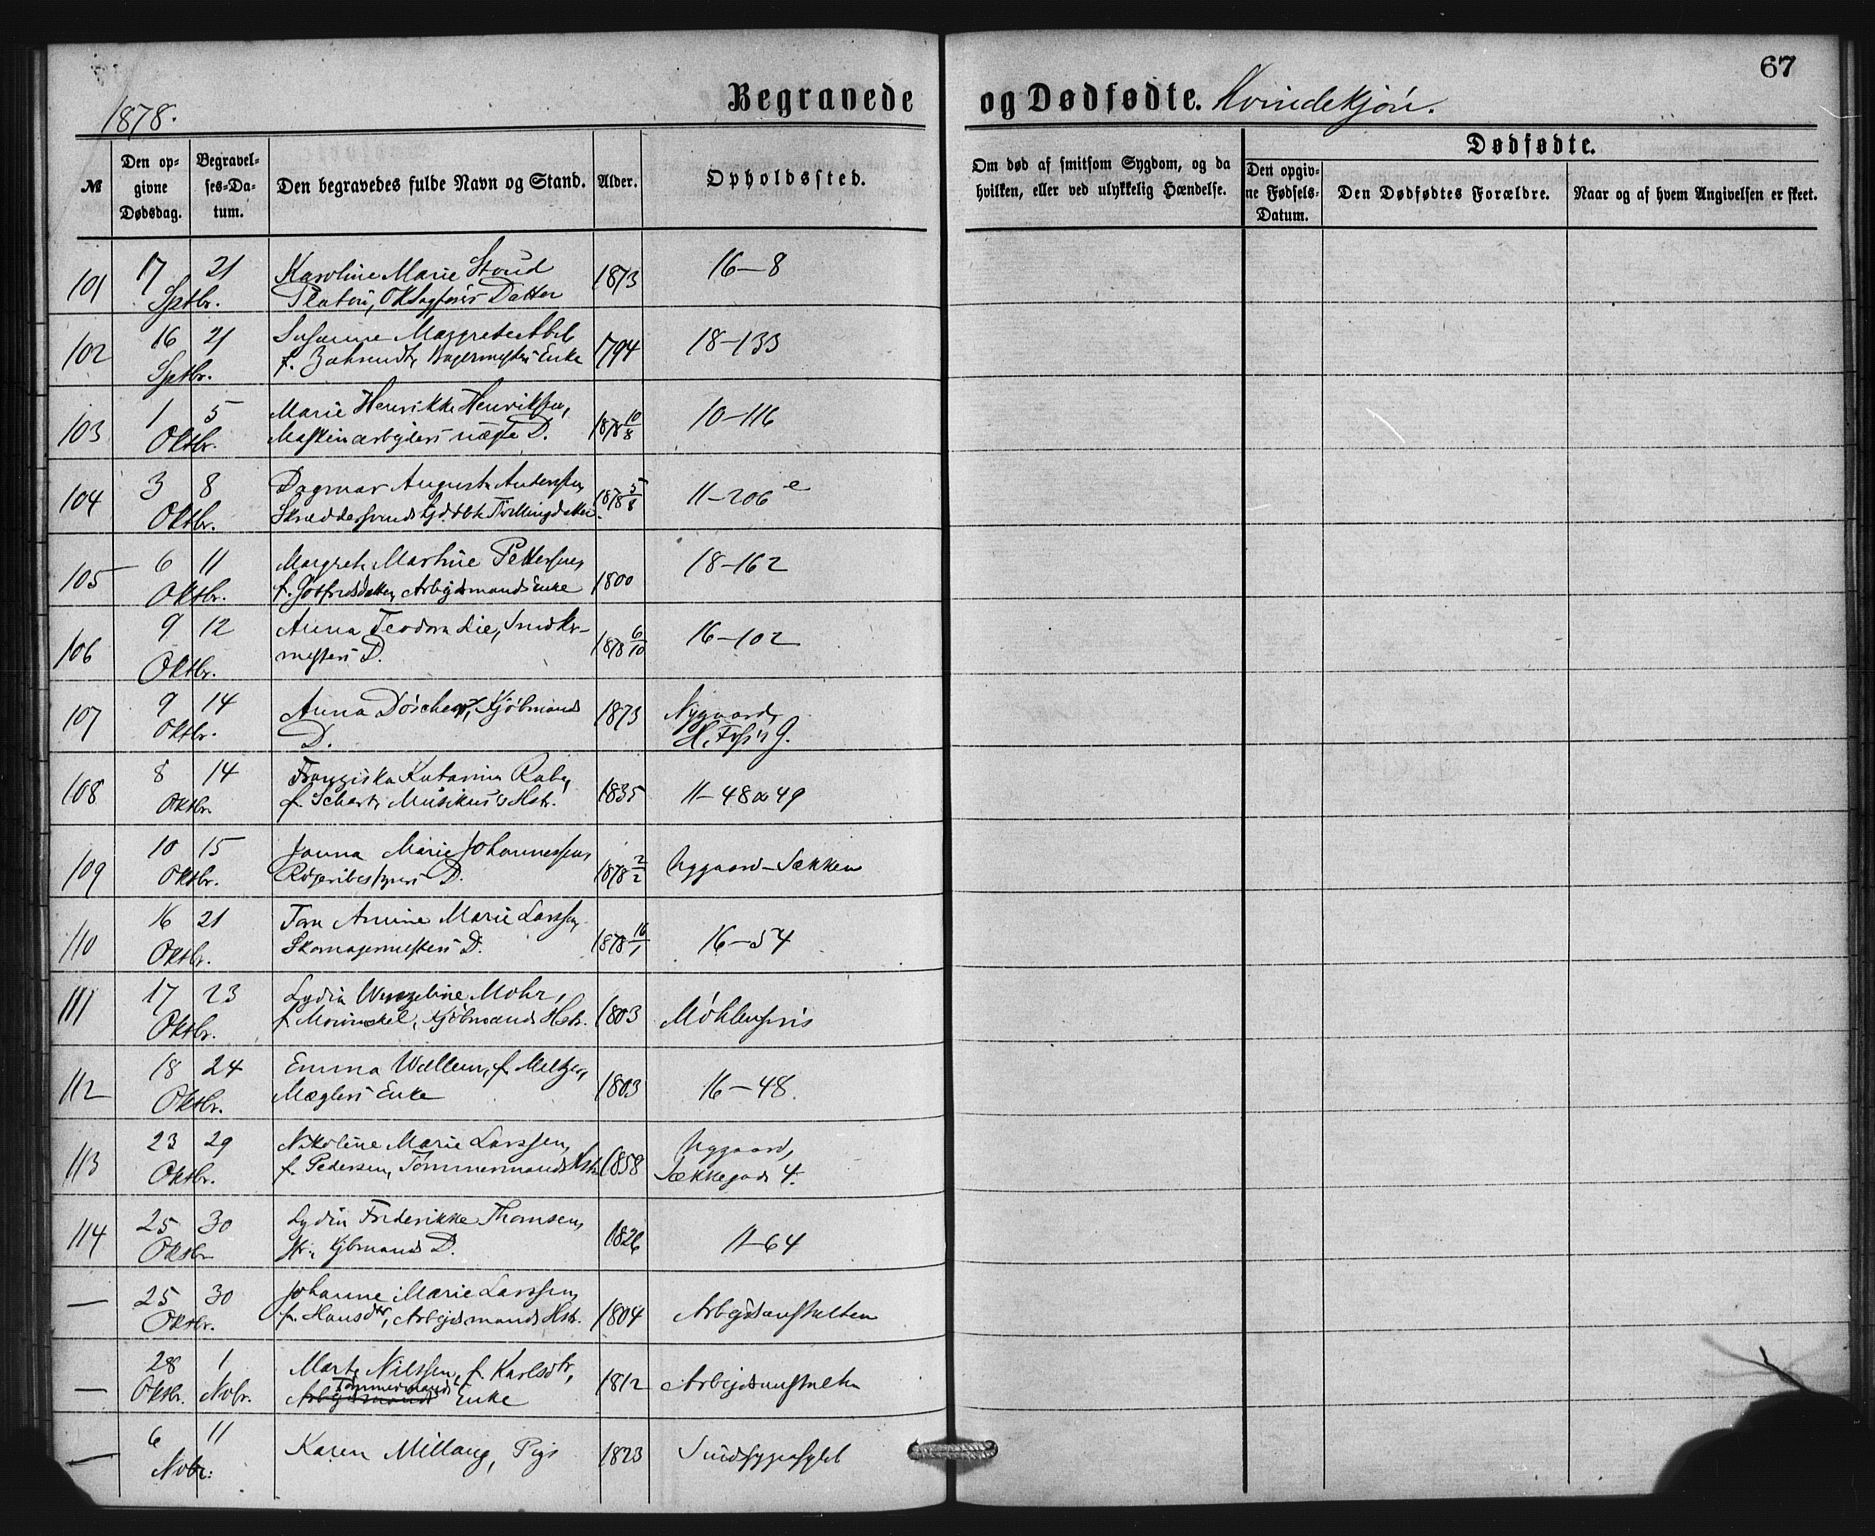 67
1878.
Begravede og Dødfødte. Kvindekjøn.
№
Den opgivne Dødsdag.
Begravelses-Datum.
Den begravedes fulde Navn og Stand.
Alder.
Opholdssted.
Om død af smitsom Sygdom, og da hvilken, eller ved ulykkelig Hændelse.
Dødfødte.
Den opgivne Fødsels-Datum.
Den Dødfødtes Forældre.
Naar og af hvem Angivelsen er skeet.
101 17 21 Karoline Marie Stoud 1873 16-8
Septbr. Datter
102 16 21 Susanne Margrete Abel 1794 18-133
Septbr. f. Zahrendt, Bagermesters Enke
103 1 5 Marie Henrikke Henriksen, 1878 10/8 10-116
Oktbr. Maskinarbejders uægte D.
104 3 8 Dagmar Augusta Andersen 1878 5/8 11-206e
Oktbr. Tvillingdatter
105 6 11 Margrete Martine Pettersen 1800 18-162
Oktbr. f. Arbejdsmands Enke
106 9 12 Anna Teodora Lie, Snedker- 1878 6/10 16-102
Oktbr. mesters D.
107 9 14 Anna Döscher, Kjöbmands 1873 Nygaard,
Oktbr. D.
108 8 14 Franziska Katarina Rabe, 1835 11-48 & 49
Oktbr. f. Schartz, Musikus's Hstr.
109 10 15 Janna Marie Johannessen 1878 2/2 Nygaard-Sækken
Oktbr. D.
110 16 21 Tora Amine Marie Larssen 1878 16/1 16-54
Oktbr. Skomagermesters D.
111 17 23 Lydia Wenzeline Mohr, 1803 Möhlenpris
Oktbr. f. Mowinckel, Kjöbmands Hstr.
112 18 24 Emma Wallem, f. Meltzer, 1803 16-48.
Oktbr. Mæglers Enke
113 23 29 Nikoline Marie Larssen, 1858 Nygaard,
Oktbr. f. Pedersen, Tömmermands Hstr. Sækkegade 4.
114 25 30 Lydia Frederikke Thomsen, 1826 11-64
Oktbr. Kjbmands D.
— 25 30 Johanne Marie Larssen, 1804 Arbejdsanstalten
Oktbr. f. Hansdtr, Arbejdsmands Hstr.
— 28 1 Marte Nilssen, f. Karlsdtr, 1812 Arbejdsanstalten
Oktbr. Novbr. Tömmermands
Arbejdsmands Enke
— 6 11 Karen Millang, Pige 1823 Sindsygeasylet
Novbr.